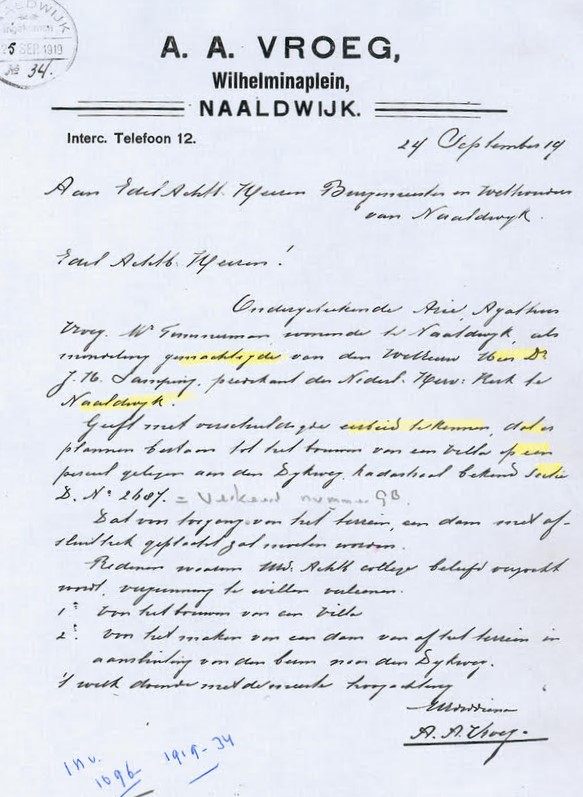 NAALDWIJK
25 SEP. 1919
No 34.
A. A. VROEG,
Wilhelminaplein,
NAALDWIJK.
Interc. Telefoon 12.
24 September 19
Aan Edel Achtb. Heeren Burgemeester en Wethouders
van Naaldwyk.
Edel Achtb. Heeren!
Ondergeteekende Arie Agathus
Vroeg. Mr Timmerman, wonende te Naaldwyk, als
mondeling gemachtigde van den Weleerw Heer Dr
J. H. Lamping, predikant der Nederl. Herv: Kerk te
Naaldwyk.
Geeft met verschuldigde eerbied te kennen, dat er
plannen bestaan tot het bouwen van een Villa op een
perceel gelegen aan den Dykweg, kadastraal bekend Sectie
D. No 2687. = Verkeerd nummer GB.
Dat voor toegang van het terrein, een dam met af-
sluithek geplaatst zal moeten worden.
Redenen waarom Uwd. Achtb college beleefd verzocht
wordt, vergunning te willen verleenen.
1e voor het bouwen van een Villa
2e voor het maken van een dam van af het terrein in
aansluiting van den berm naar den Dykweg.
't welk doende met de meeste hoogachting
Uwdw dienaar
A. A. Vroeg.
Inv.
1696 1919-34